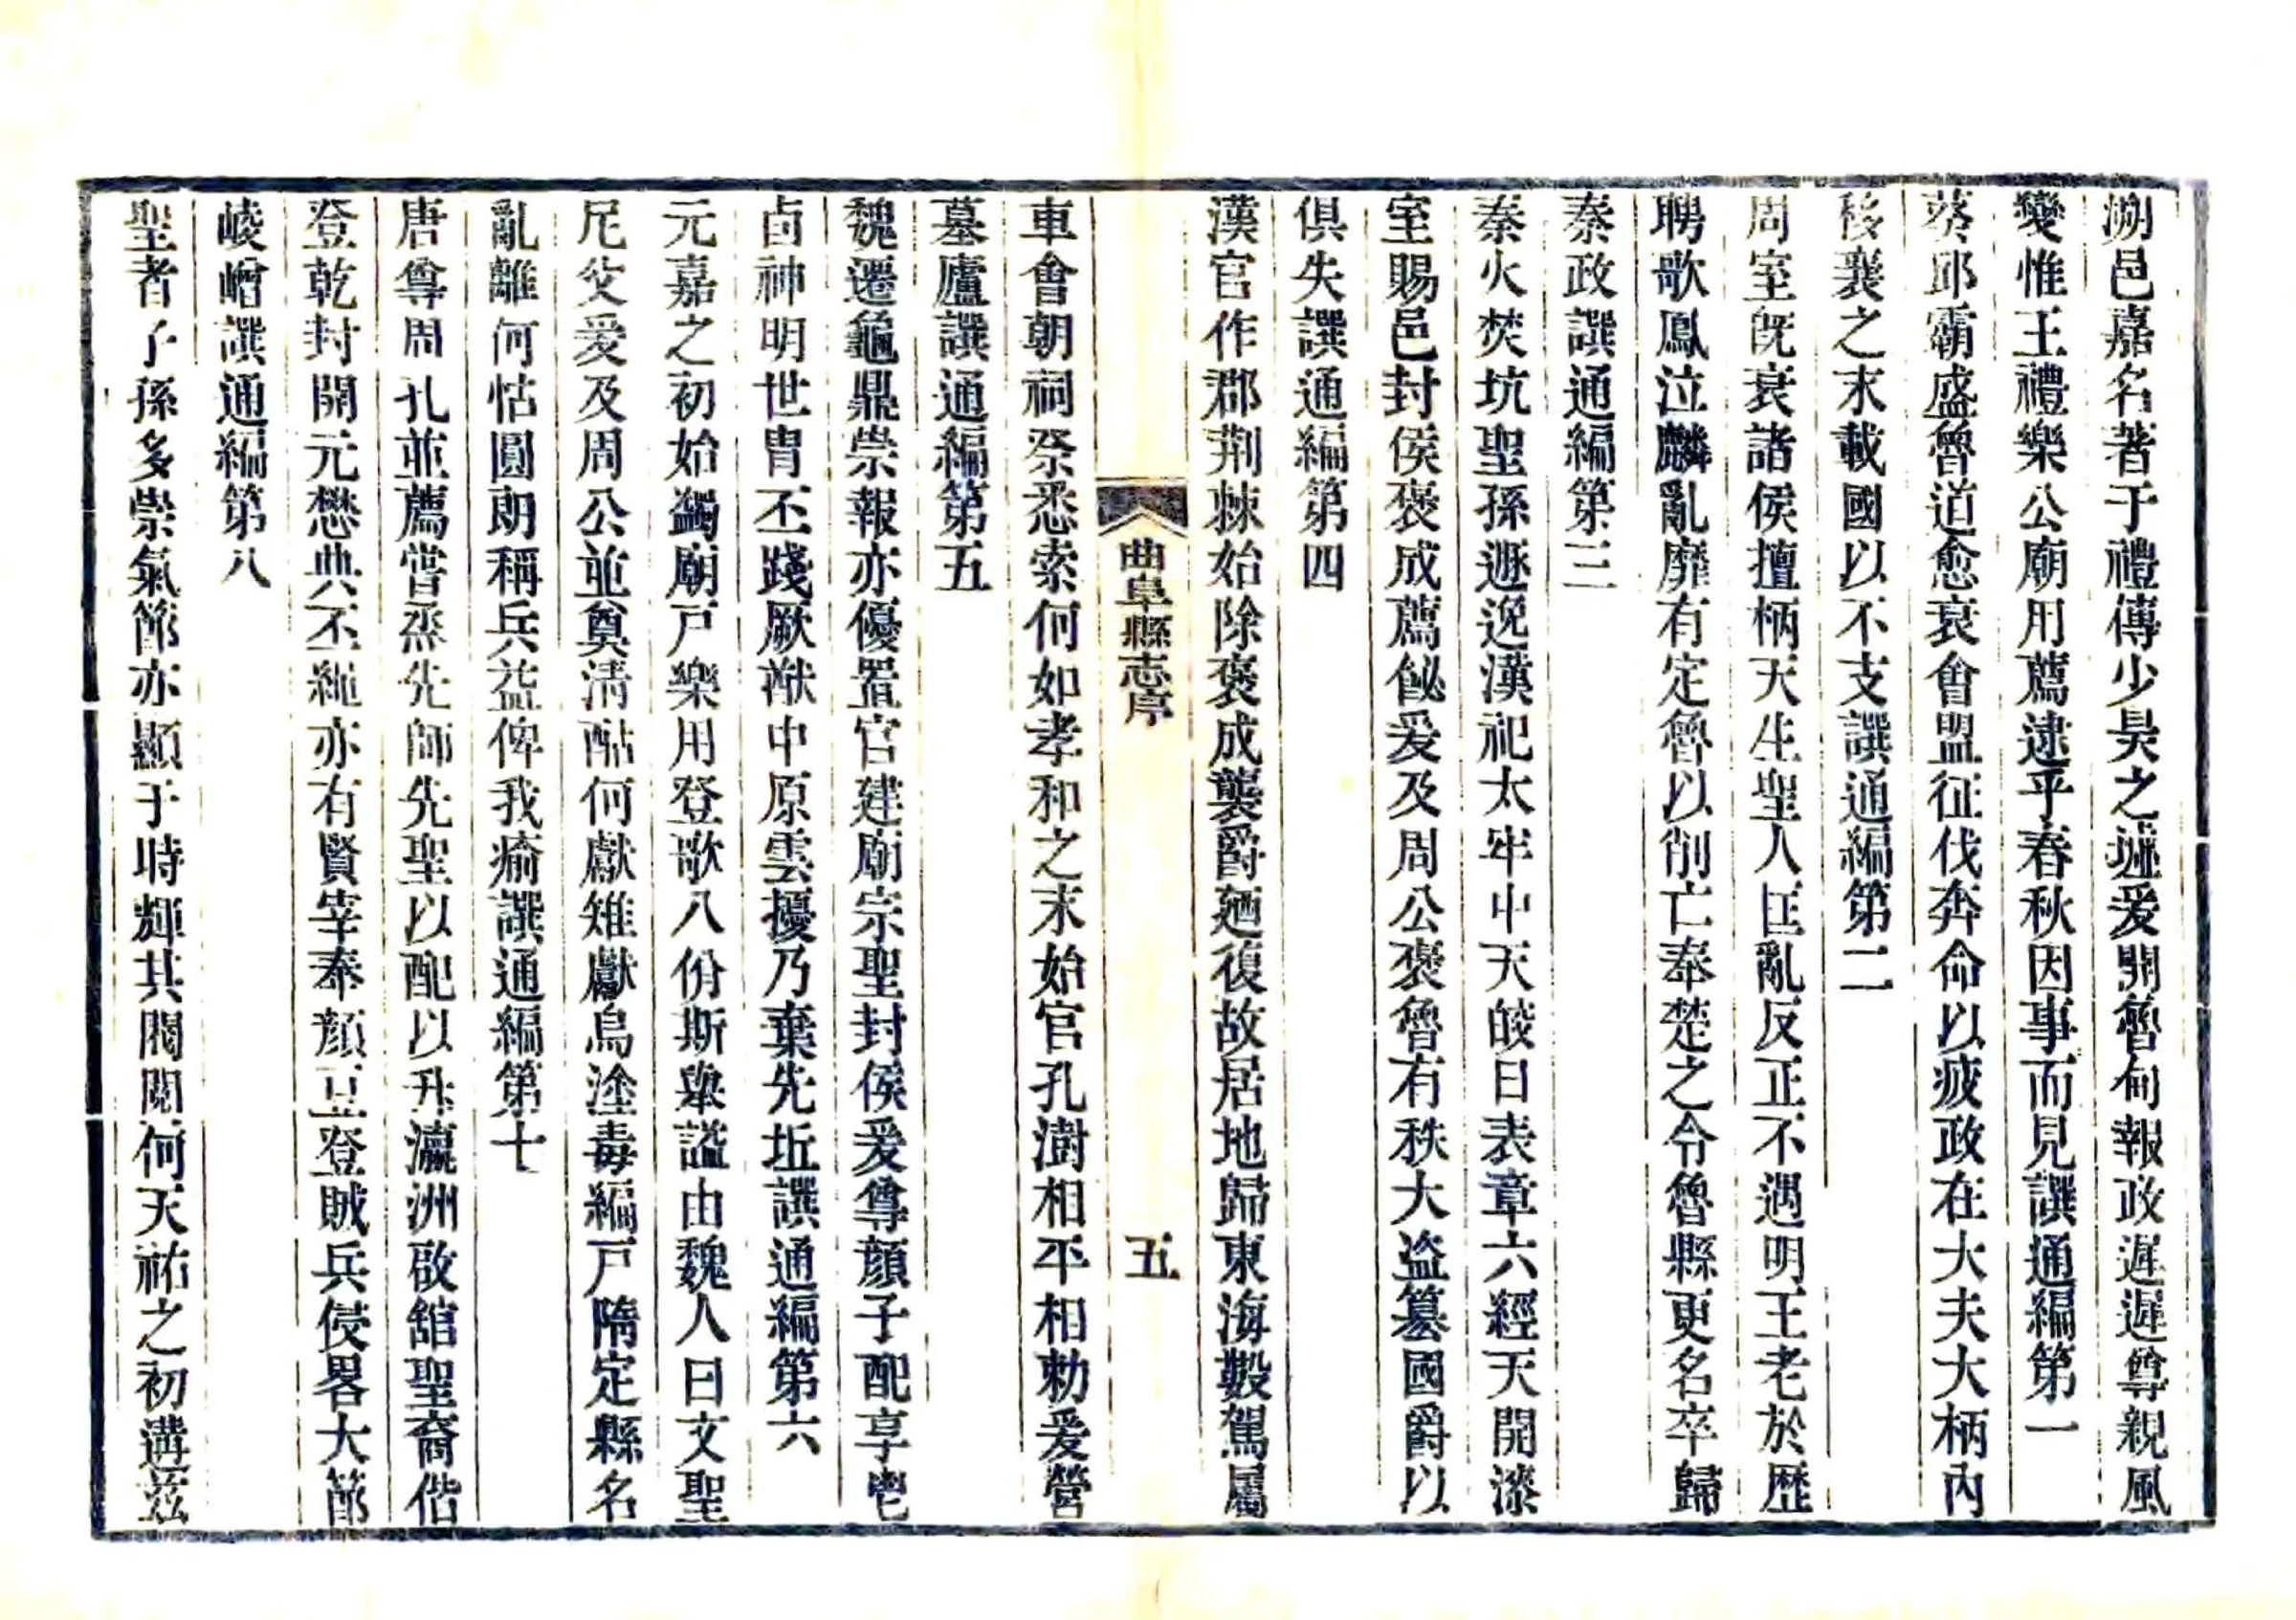 溯邑嘉名著于禮傳少昊之墟爰開魯甸報政遲遲尊親風
變惟王禮樂公廟用薦逮乎春秋因事而見譔通編第一
葵邱霸盛魯道愈衰會盟征伐奔命以疲政在大夫大柄內
移襄之末載國以不支譔通編第二
周室旣衰諸侯擅柄天生聖人匡亂反正不遇明王老於歷
聘歌鳳泣麟亂靡有定魯以削亡奉楚之令魯縣更名卒歸
秦政譔通編第三
秦火焚坑聖孫遯逸漢祀太牢中天皎日表章六經天開漆
室賜邑封侯褒成薦飶爰及周公褒魯有秩大盜篡國爵以
俱失譔通編第四
漢官作郡荆棘始除褒成襲爵廼復故居地歸東海數駕屬
車會朝祠祭悉索何如孝和之末始官孔澍相平相勅爰營
墓廬譔通編第五
魏遷龜鼎崇報亦優置官建廟宗聖封侯爰尊顏子配享鬯
卣神明世胄丕踐厥猷中原雲擾乃棄先坵譔通編第六
元嘉之初始蠲廟戸樂用登歌八佾斯舉諡由魏人曰文聖
尼父爰及周公並奠淸酤何獻雉獻烏塗毒編戸隋定縣名
亂離何怙圓朗稱兵益俾我瘉譔通編第十
唐尊周孔並薦嘗烝先師先聖以配以升瀛洲啟舘聖裔偕
登乾封開元懋典丕繩亦有賢宰奉顏豆登賊兵侵畧大節
崚嶒譔通編第八
聖者子孫多崇氣節亦顯于時輝其閥閱何天祐之初遘茲
曲阜縣志序
五